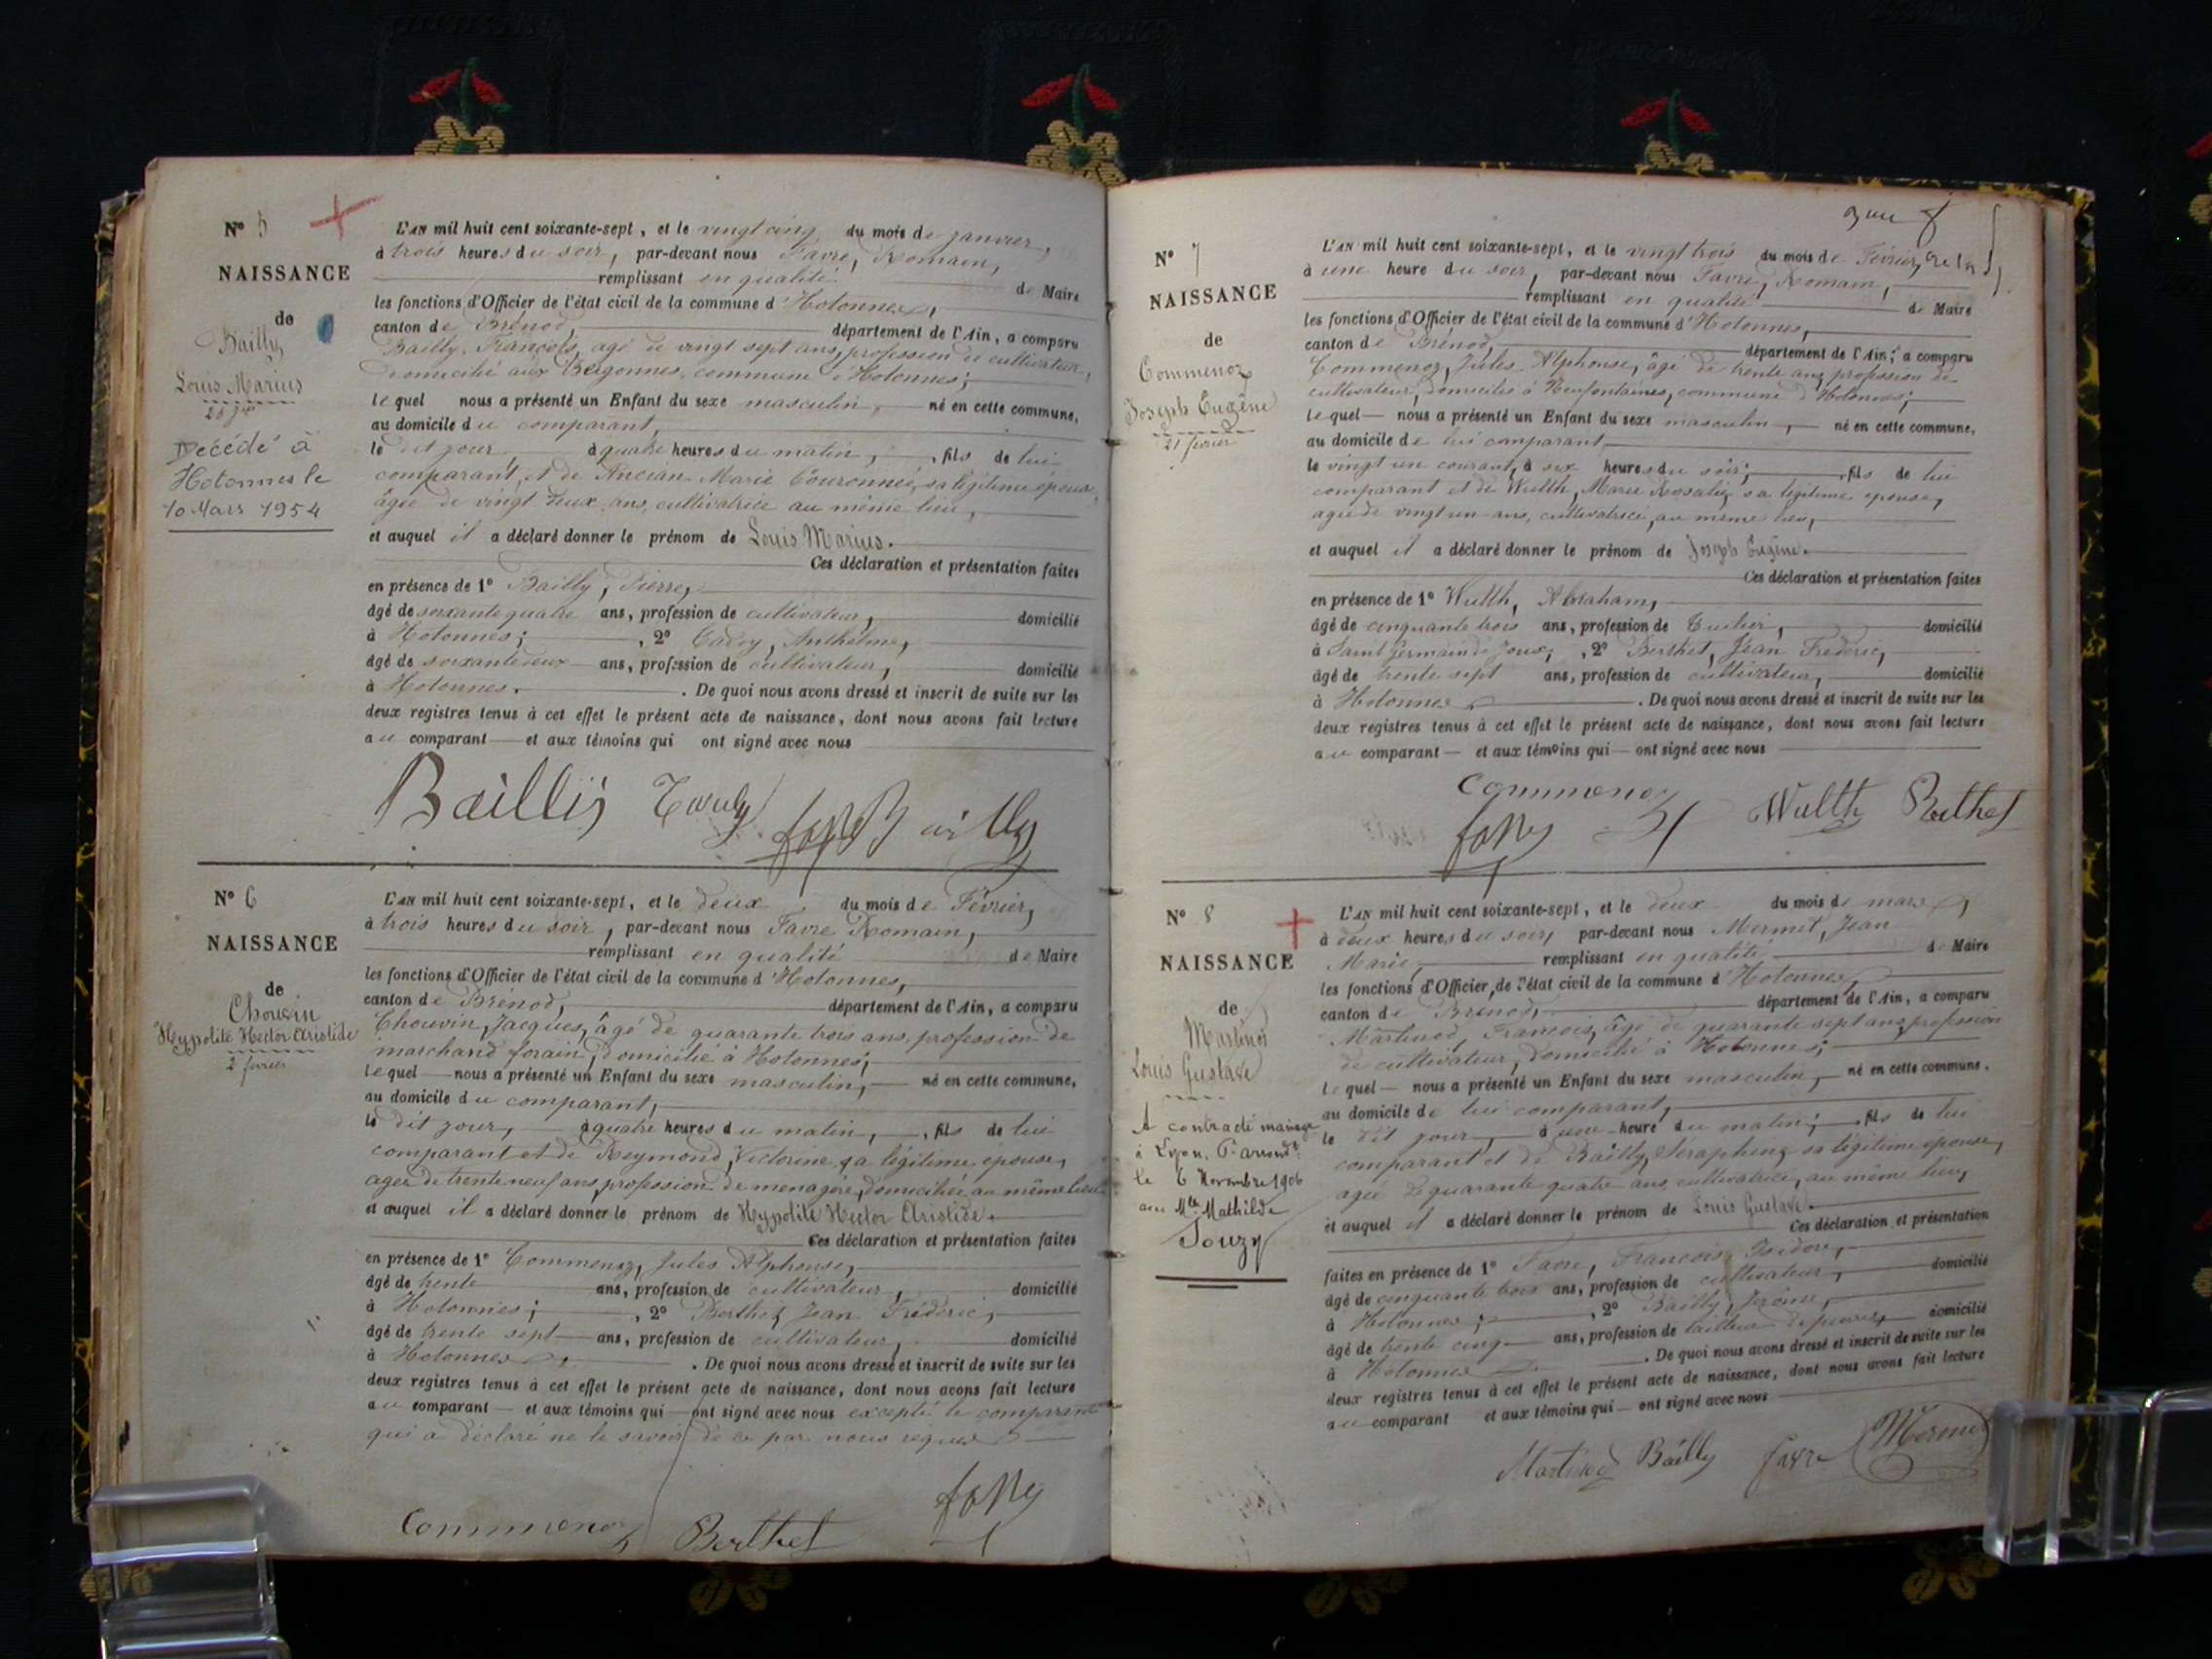 N° 5
NAISSANCE
de
Bailly
Louis Marius
25 jer
Décédé à
Hotonnes le
10 Mars 1954
L'AN mil huit cent soixante-sept, et le vingt cinq du mois de janvier,
à trois heures du soir, par-devant nous Favre, Romain,
remplissant en qualité de Maire
les fonctions d'Officier de l'état civil de la commune d'Hotonnes,
canton de Brénod, département de l'Ain, a comparu
Bailly, François, agé de vingt sept ans, profession de cultivateur,
domicilié aux Bergonnes, commune d'Hotonnes;
lequel nous a présenté un Enfant du sexe masculin, né en cette commune,
au domicile du comparant,
le dit jour, à quatre heures du matin, , fils de lui
comparant, et de Ancian Marie Couronnée, sa légitime épouse,
âgée de vingt deux ans, cultivatrice au même lieu,
et auquel il a déclaré donner le prénom de Louis Marius.
Ces déclaration et présentation faites
en présence de 1° Bailly, Pierre,
âgé de soixante quatre ans, profession de cultivateur, domicilié
à Hotonnes; , 2° Anthelme,
âgé de soixante deux ans, profession de cultivateur, domicilié
à Hotonnes. . De quoi nous avons dressé et inscrit de suite sur les
deux registres tenus à cet effet le présent acte de naissance, dont nous avons fait lecture
au comparant et aux témoins qui ont signé avec nous
Baillij Bailly
N° 6
NAISSANCE
de
Chouvin
Hypolite Hector Aristide
2 février
L'AN mil huit cent soixante-sept, et le deux du mois de Février,
à trois heures du soir, par-devant nous Favre Romain,
remplissant en qualité de Maire
les fonctions d'Officier de l'état civil de la commune d'Hotonnes,
canton de Brénod, département de l'Ain, a comparu
Chouvin, Jacques, âgé de quarante trois ans, profession de
marchand forain, domicilié à Hotonnes;
lequel nous a présenté un Enfant du sexe masculin, né en cette commune,
au domicile du comparant,
le dit jour, à quatre heures du matin, , fils de lui
comparant et de Reymond, Victorine, sa légitime épouse,
agée de trente neuf ans, profession de menagère, domiciliée au même lieu
et auquel il a déclaré donner le prénom de Hypolite Hector Aristide.
Ces déclaration et présentation faites
en présence de 1° Commenoz, Jules Alphonse,
âgé de trente ans, profession de cultivateur, domicilié
à Hotonnes; , 2° Berthet, Jean Fréderic,
âgé de trente sept ans, profession de cultivateur, domicilié
à Hotonnes . De quoi nous avons dressé et inscrit de suite sur les
deux registres tenus à cet effet le présent acte de naissance, dont nous avons fait lecture
au comparant et aux témoins qui ont signé avec nous excepté le comparant
qui a déclaré ne le savoir de ce par nous requis
Commenoz Berthet
N° 7
NAISSANCE
de
Commenoz
Joseph Eugène
21 février
L'AN mil huit cent soixante-sept, et le vingt trois du mois de Février,
à une heure du soir, par-devant nous Favre, Romain,
remplissant en qualité de Maire
les fonctions d'Officier de l'état civil de la commune d'Hotonnes,
canton de Brénod, département de l'Ain, a comparu
Commenoz, Jules Alphonse, âgé de trente ans, profession de
cultivateur, domicilié à Neufontaines, commune d'Hotonnes;
lequel nous a présenté un Enfant du sexe masculin, né en cette commune,
au domicile de lui comparant,
le vingt un courant, à six heures du soir; , fils de lui
comparant et de Wulth, Marie Rosalie, sa légitime épouse,
agée de vingt un ans, cultivatrice, au même lieu,
et auquel il a déclaré donner le prénom de Joseph Eugène.
Ces déclaration et présentation faites
en présence de 1° Wulth, Abraham,
âgé de cinquante trois ans, profession de Tuilier, domicilié
à Saint Germain de Joux, , 2° Berthet, Jean Fréderic,
âgé de trente sept ans, profession de cultivateur, domicilié
à Hotonnes . De quoi nous avons dressé et inscrit de suite sur les
deux registres tenus à cet effet le présent acte de naissance, dont nous avons fait lecture
au comparant et aux témoins qui ont signé avec nous
Commenoz Wulth Berthet
N° 8
NAISSANCE
de
Martinod
Louis Gustave
A contracté mariage
à Lyon, 6e arrondt
le 6 Novembre 1906
avec Mlle Mathilde
Jouzy
L'AN mil huit cent soixante-sept, et le deux du mois de mars,
à deux heures du soir, par-devant nous Mermet, Jean
Marie, remplissant en qualité de Maire
les fonctions d'Officier de l'état civil de la commune d'Hotonnes,
canton de Brénod, département de l'Ain, a comparu
Martinod, François, âgé de quarante sept ans, profession
de cultivateur, domicilié à Hotonnes;
lequel nous a présenté un Enfant du sexe masculin, né en cette commune,
au domicile de lui comparant,
le dit jour, à une heure du matin; , fils de lui
comparant et de Bailly, Séraphine, sa légitime épouse,
agée de quarante quatre ans, cultivatrice, au même lieu,
et auquel il a déclaré donner le prénom de Louis Gustave.
Ces déclaration et présentation
faites en présence de 1° Favre, François Isidore,
âgé de cinquante trois ans, profession de cultivateur, domicilié
à Hotonnes; , 2° Bailly, Jérôme,
âgé de trente cinq ans, profession de tailleur de pierres, domicilié
à Hotonnes . De quoi nous avons dressé et inscrit de suite sur les
deux registres tenus à cet effet le présent acte de naissance, dont nous avons fait lecture
au comparant et aux témoins qui ont signé avec nous
Martinod Bailly favre Mermet